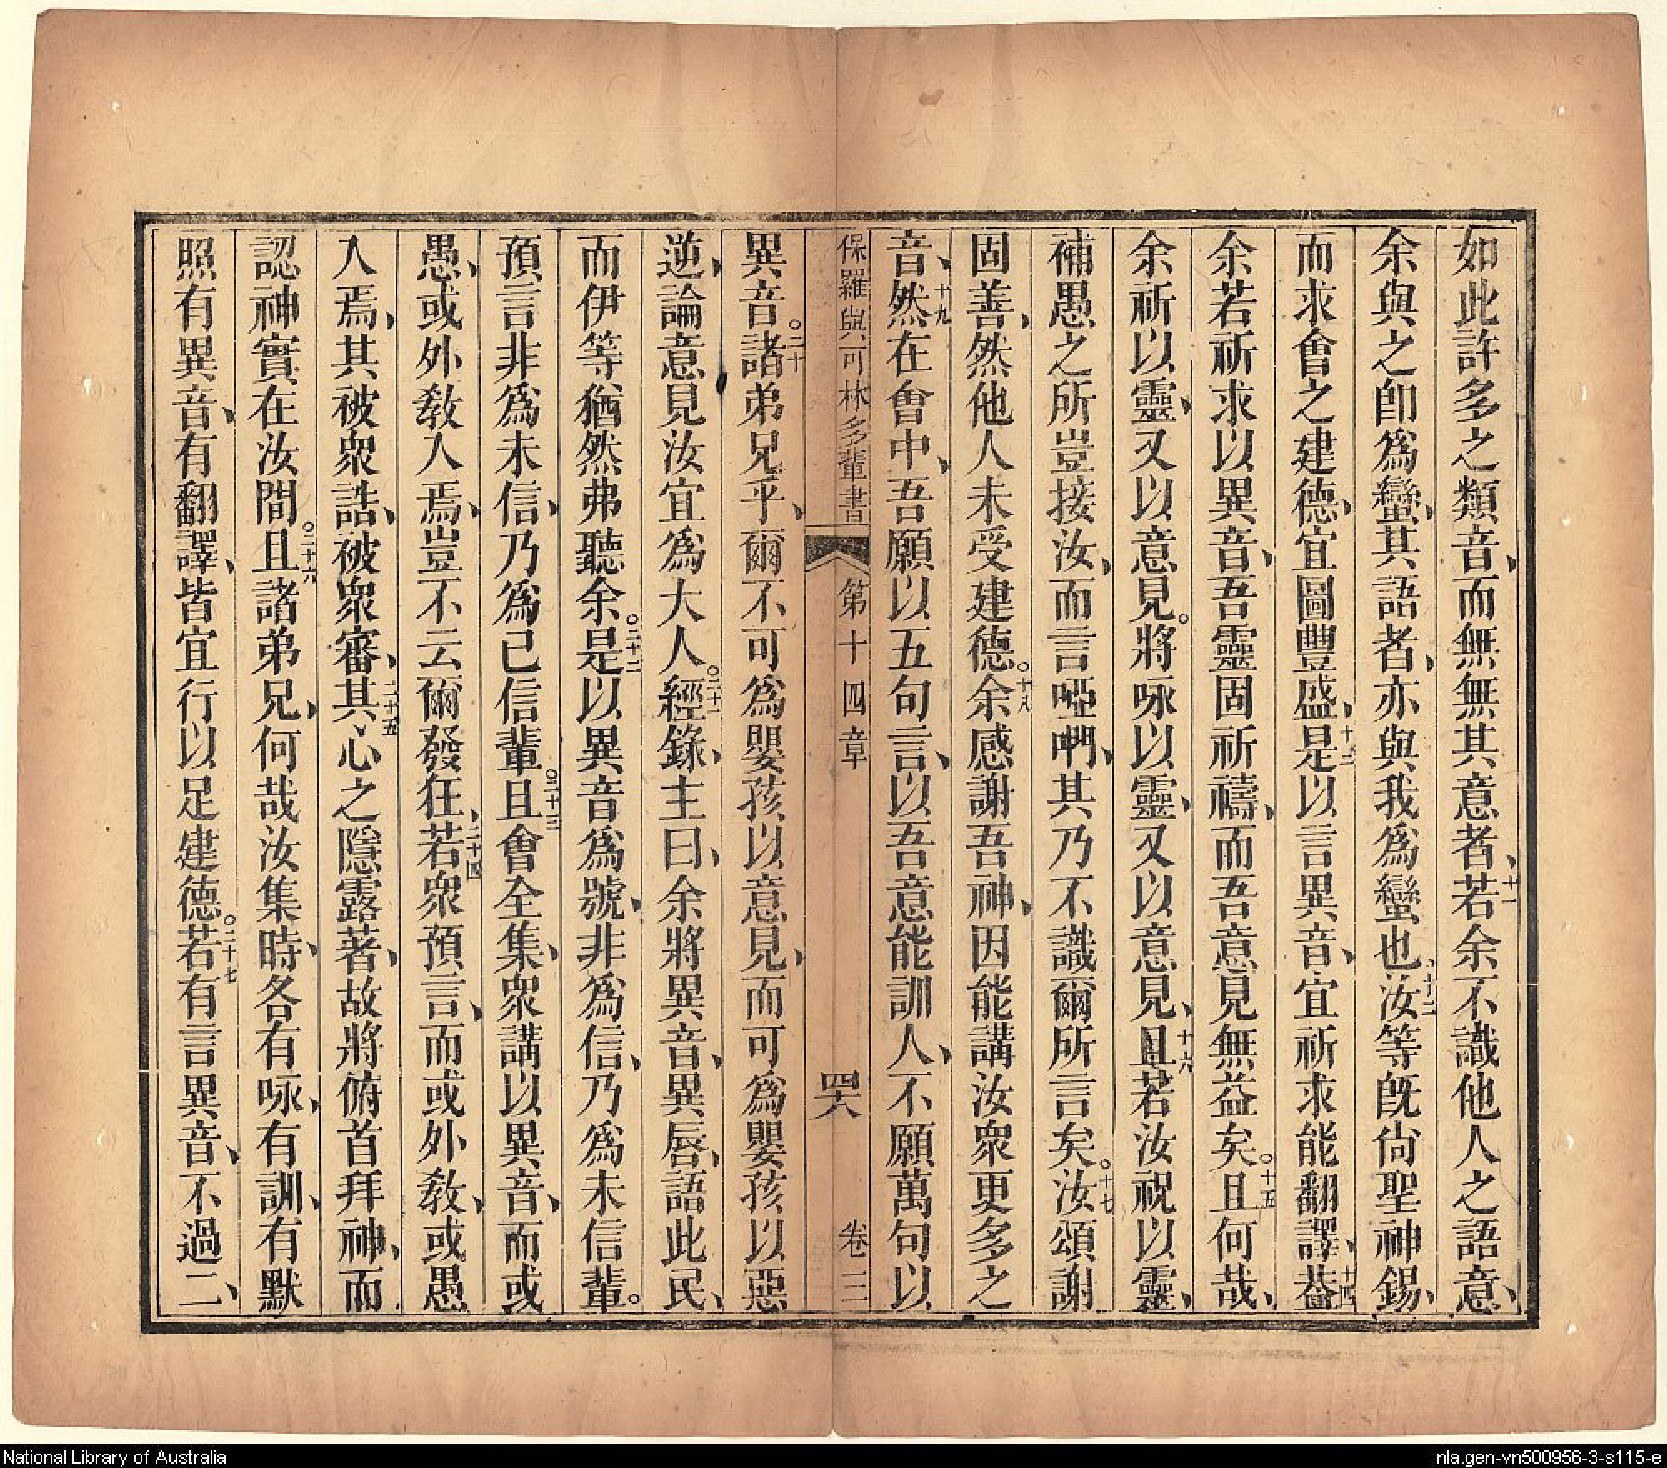 如此許多之類音、而無無其意者、十一若余不識他人之語意、
余與之卽爲蠻、其語者、亦與我爲蠻也、十二汝等旣尙聖神錫、
而求會之建德、宜圖豐盛、十三是以言異音、宜祈求能翻譯、十四葢
余若祈求以異音、吾靈固祈禱、而吾意見無益矣。十五且何哉、
余祈以靈、又以意見。將咏以靈、又以意見、十六且若汝祝以靈、
補愚之所豈接汝、而言啞㗄、其乃不識爾所言矣。十七汝頌謝
固善、然他人未受建德。十八余感謝吾神、因能講汝衆更多之
音、十九然在會中、吾願以五句言、以吾意能訓人、不願萬句以
保羅與可林多輩書 第十四章 四六 卷三
異音。二十諸弟兄乎、爾不可爲嬰孩以意見、而可爲嬰孩以惡
逆、論意見汝宜爲大人。二十一經錄、主曰、余將異音、異唇、語此民、
而伊等猶然弗聽余。二十二是以異音爲號、非爲信、乃爲未信輩。
預言非爲未信、乃爲已信輩。二十三且會全集、衆講以異音、而或
愚、或外敎人焉、豈不云爾發狂、二十四若衆預言、而或外敎、或愚
人焉、其被衆誥、被衆審、二十五其心之隱露著、故將俯首拜神、而
認神實在汝間。二十六且諸弟兄、何哉汝集時、各有咏、有訓、有默
照有異音、有翻譯、皆宜行以足建德。二十七若有言異音、不過二、